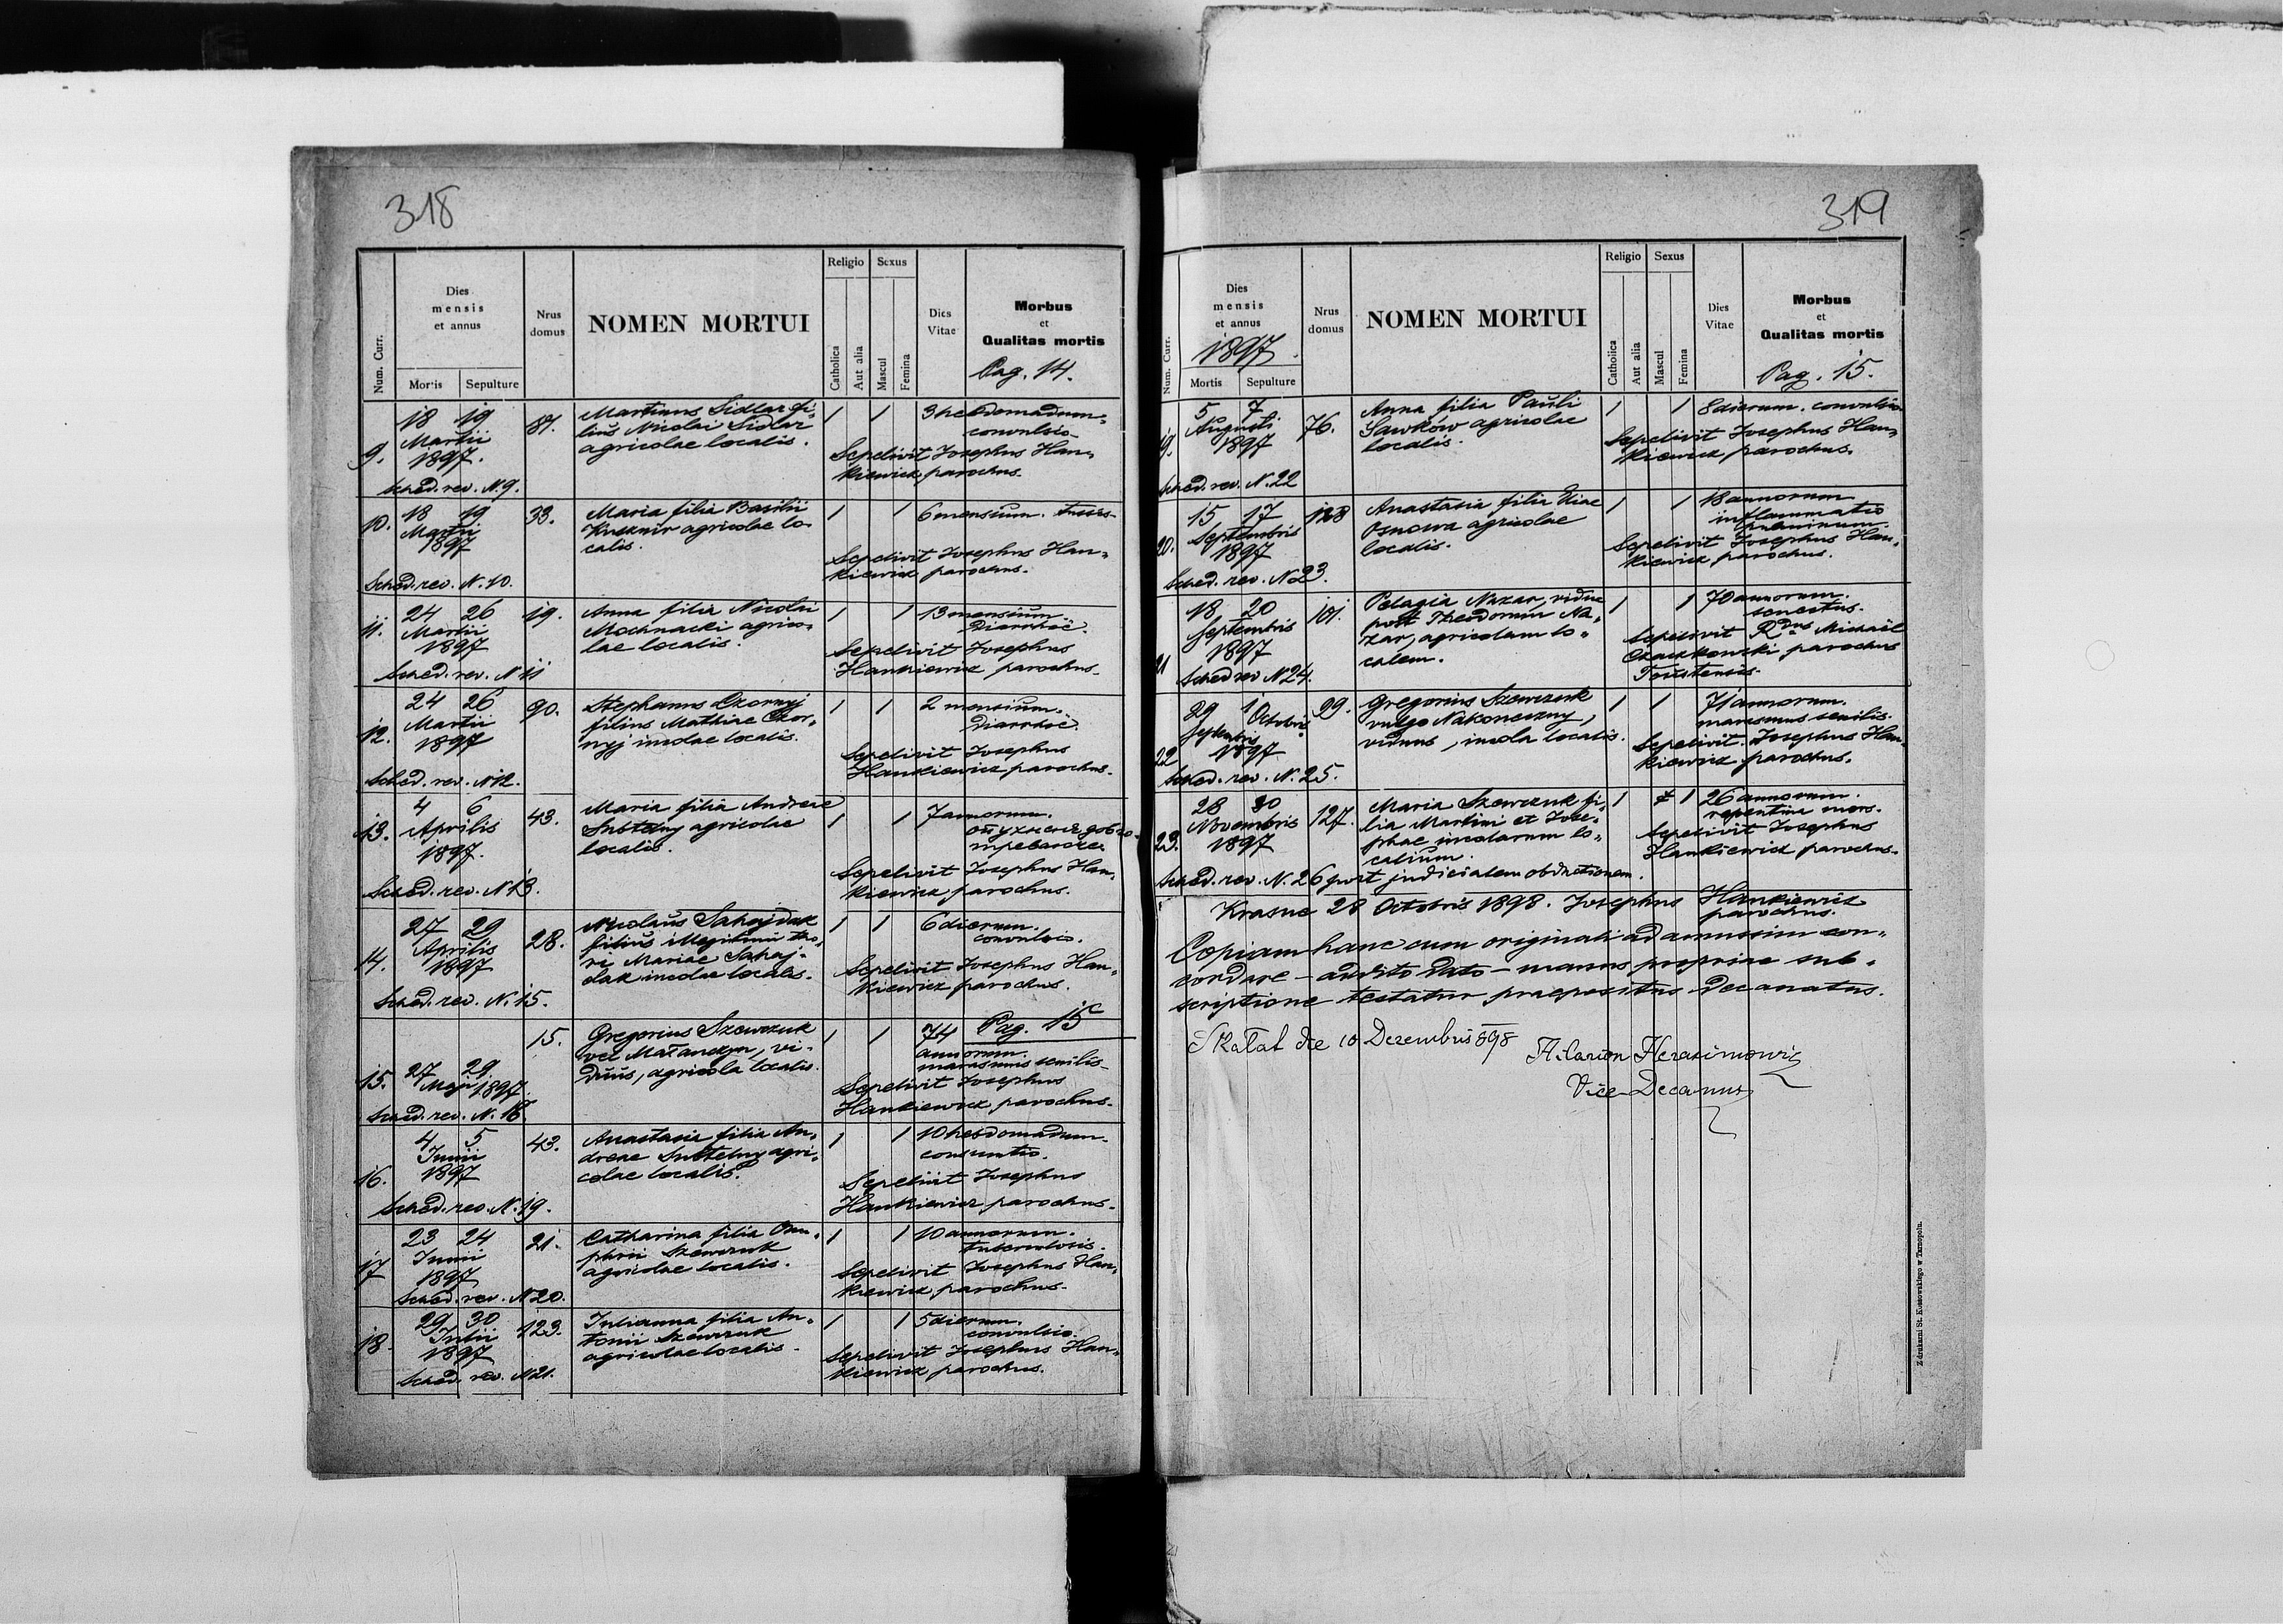 318
Num. Curr.
Dies
mensis
et annus
Mortis
Sepulture
Nrus
domus
NOMEN MORTUI
Religio
Catholica
Aut alia
Sexus
Mascul
Femina
Dies
Vitae
Morbus
et
Qualitas mortis
Pag. 14.
9.
18 19
Martii
1897.
Sched. rev. N. 9.
87.
Martinus Sidlar fi-
lius Nicolai Sidlar
agricolae localis.
1 1
3 hebdomadum.
convulsio.
Sepelivit Josephus Han-
kiewicz, parochus.
10.
18 19
Martii
1897
Sched. rev. N. 10.
33.
Maria filia Basilii
Kusznir agricolae lo-
calis.
1 1
6 mensium. tussis.
Sepelivit Josephus Han-
kiewicz parochus.
11.
24 26
Martii
1897
Sched. rev. N 11
19.
Anna filia Nicolai
Mochnacki agrico-
lae localis.
1 1
13 mensium
Diarrhoë.
Sepelivit Josephus
Hankiewicz parochus.
12.
24 26
Martii
1897
Sched. rev. N 12.
90.
Stephanus Czornyj
filius Mathiae Czor-
nyj incolae localis.
1 1
2 mensium.
Diarrhoë.
Sepelivit Josephus
Hankiewicz parochus.
13.
4 6
Aprilis
1897.
Sched. rev. N 13.
43.
Maria filia Andreae
Subtelny agricolae
localis.
1 1
7 annorum.
Sepelivit Josephus Han-
kiewicz parochus.
14.
27 29
Aprilis
1897
Sched. rev. N. 15.
28.
Nicolaus Sahajdak
filius illegitimi tho-
ri Mariae Sahaj-
dak incolae localis.
1 1
6 dierum.
convulsio.
Sepelivit Josephus Han-
kiewicz parochus.
15.
27 29
Maji 1897.
Sched. rev. N. 18.
15.
Gregorius Szewczuk
vel Małanczyn, vi-
duus, agricola localis.
1 1
74
Pag. 15
annorum.
marasmus senilis.
Sepelivit Josephus
Hankiewicz parochus.
16.
4 5
Junii
1897
Sched. rev. N. 19.
43.
Anastasia filia An-
dreae Subtelny agri-
colae localis.
1 1
10 hebdomadum.
consumtio.
Sepelivit Josephus
Hankiewicz parochus.
17
23 24
Junii
1897
Sched. rev. N 20.
21.
Catharina filia Onu-
phrii Szewczuk
agricolae localis.
1 1
10 annorum.
tuberculosis.
Sepelivit Josephus Han-
kiewicz parochus.
18
29 30
Julii
1897
Sched. rev. N 21.
123.
Julianna filia An-
tonii Szewczuk
agricolae localis.
1 1
5 dierum.
convulsio.
Sepelivit Josephus Han-
kiewicz parochus.
319
Num. Curr.
Dies
mensis
et annus
1897.
Mortis
Sepulture
Nrus
domus
NOMEN MORTUI
Religio
Catholica
Aut alia
Sexus
Mascul
Femina
Dies
Vitae
Morbus
et
Qualitas mortis
Pag. 15.
19.
5 7
Augusti
1897
Sched. rev. N. 22
76.
Anna filia Pauli
Sawków agricolae
localis.
1 1
8 dierum. convulsio
Sepelivit Josephus Han-
kiewicz, parochus.
20.
15 17
Septembris
1897
Sched. rev. N 23.
128
Anastasia filia Eliae
Osnowa agricolae
localis.
1 1
18 annorum
inflammatio
Sepelivit Josephus Han-
kiewicz parochus.
21
18 20
Septembris
1897
Sched rev N 24.
101.
Pelagia Nazar, vidua
post Theodorum Na-
zar, agricolam lo-
calem.
1 1
70 annorum.
senectus.
Sepelivit Rdus Michaël
Czaczkowski parochus
Toustensis.
22
29 1 Octobris
Septembris
1897
Sched. rev. N. 25.
99.
Gregorius Szewczuk
vulgo Nakoneczny,
viduus, incola localis.
1 1
71 annorum.
marasmus senilis.
Sepelivit Josephus Han-
kiewicz parochus.
23.
28 30
Novembris
1897
127.
Maria Szewczuk fi-
lia Martini et Jose-
phae incolarum lo-
calium.
1 1
26 annorum.
repentina mors.
Sepelivit Josephus
Hankiewicz parochus.
Sched. rev. N. 26 post judicialem obductionem.
Krasne 28 Octobris 1898. Josephus Hankiewicz
parochus.
Copiam hanc cum originali ad amussim con-
cordare - audito dato - manus propriae sub-
scriptione testatur praepositus decanatus.
Skałat die 10 Dezembris 898
Hilarion Herasimowicz
Vice-Decanus
Z drukarni St. Kossowskiego w Tarnopolu.